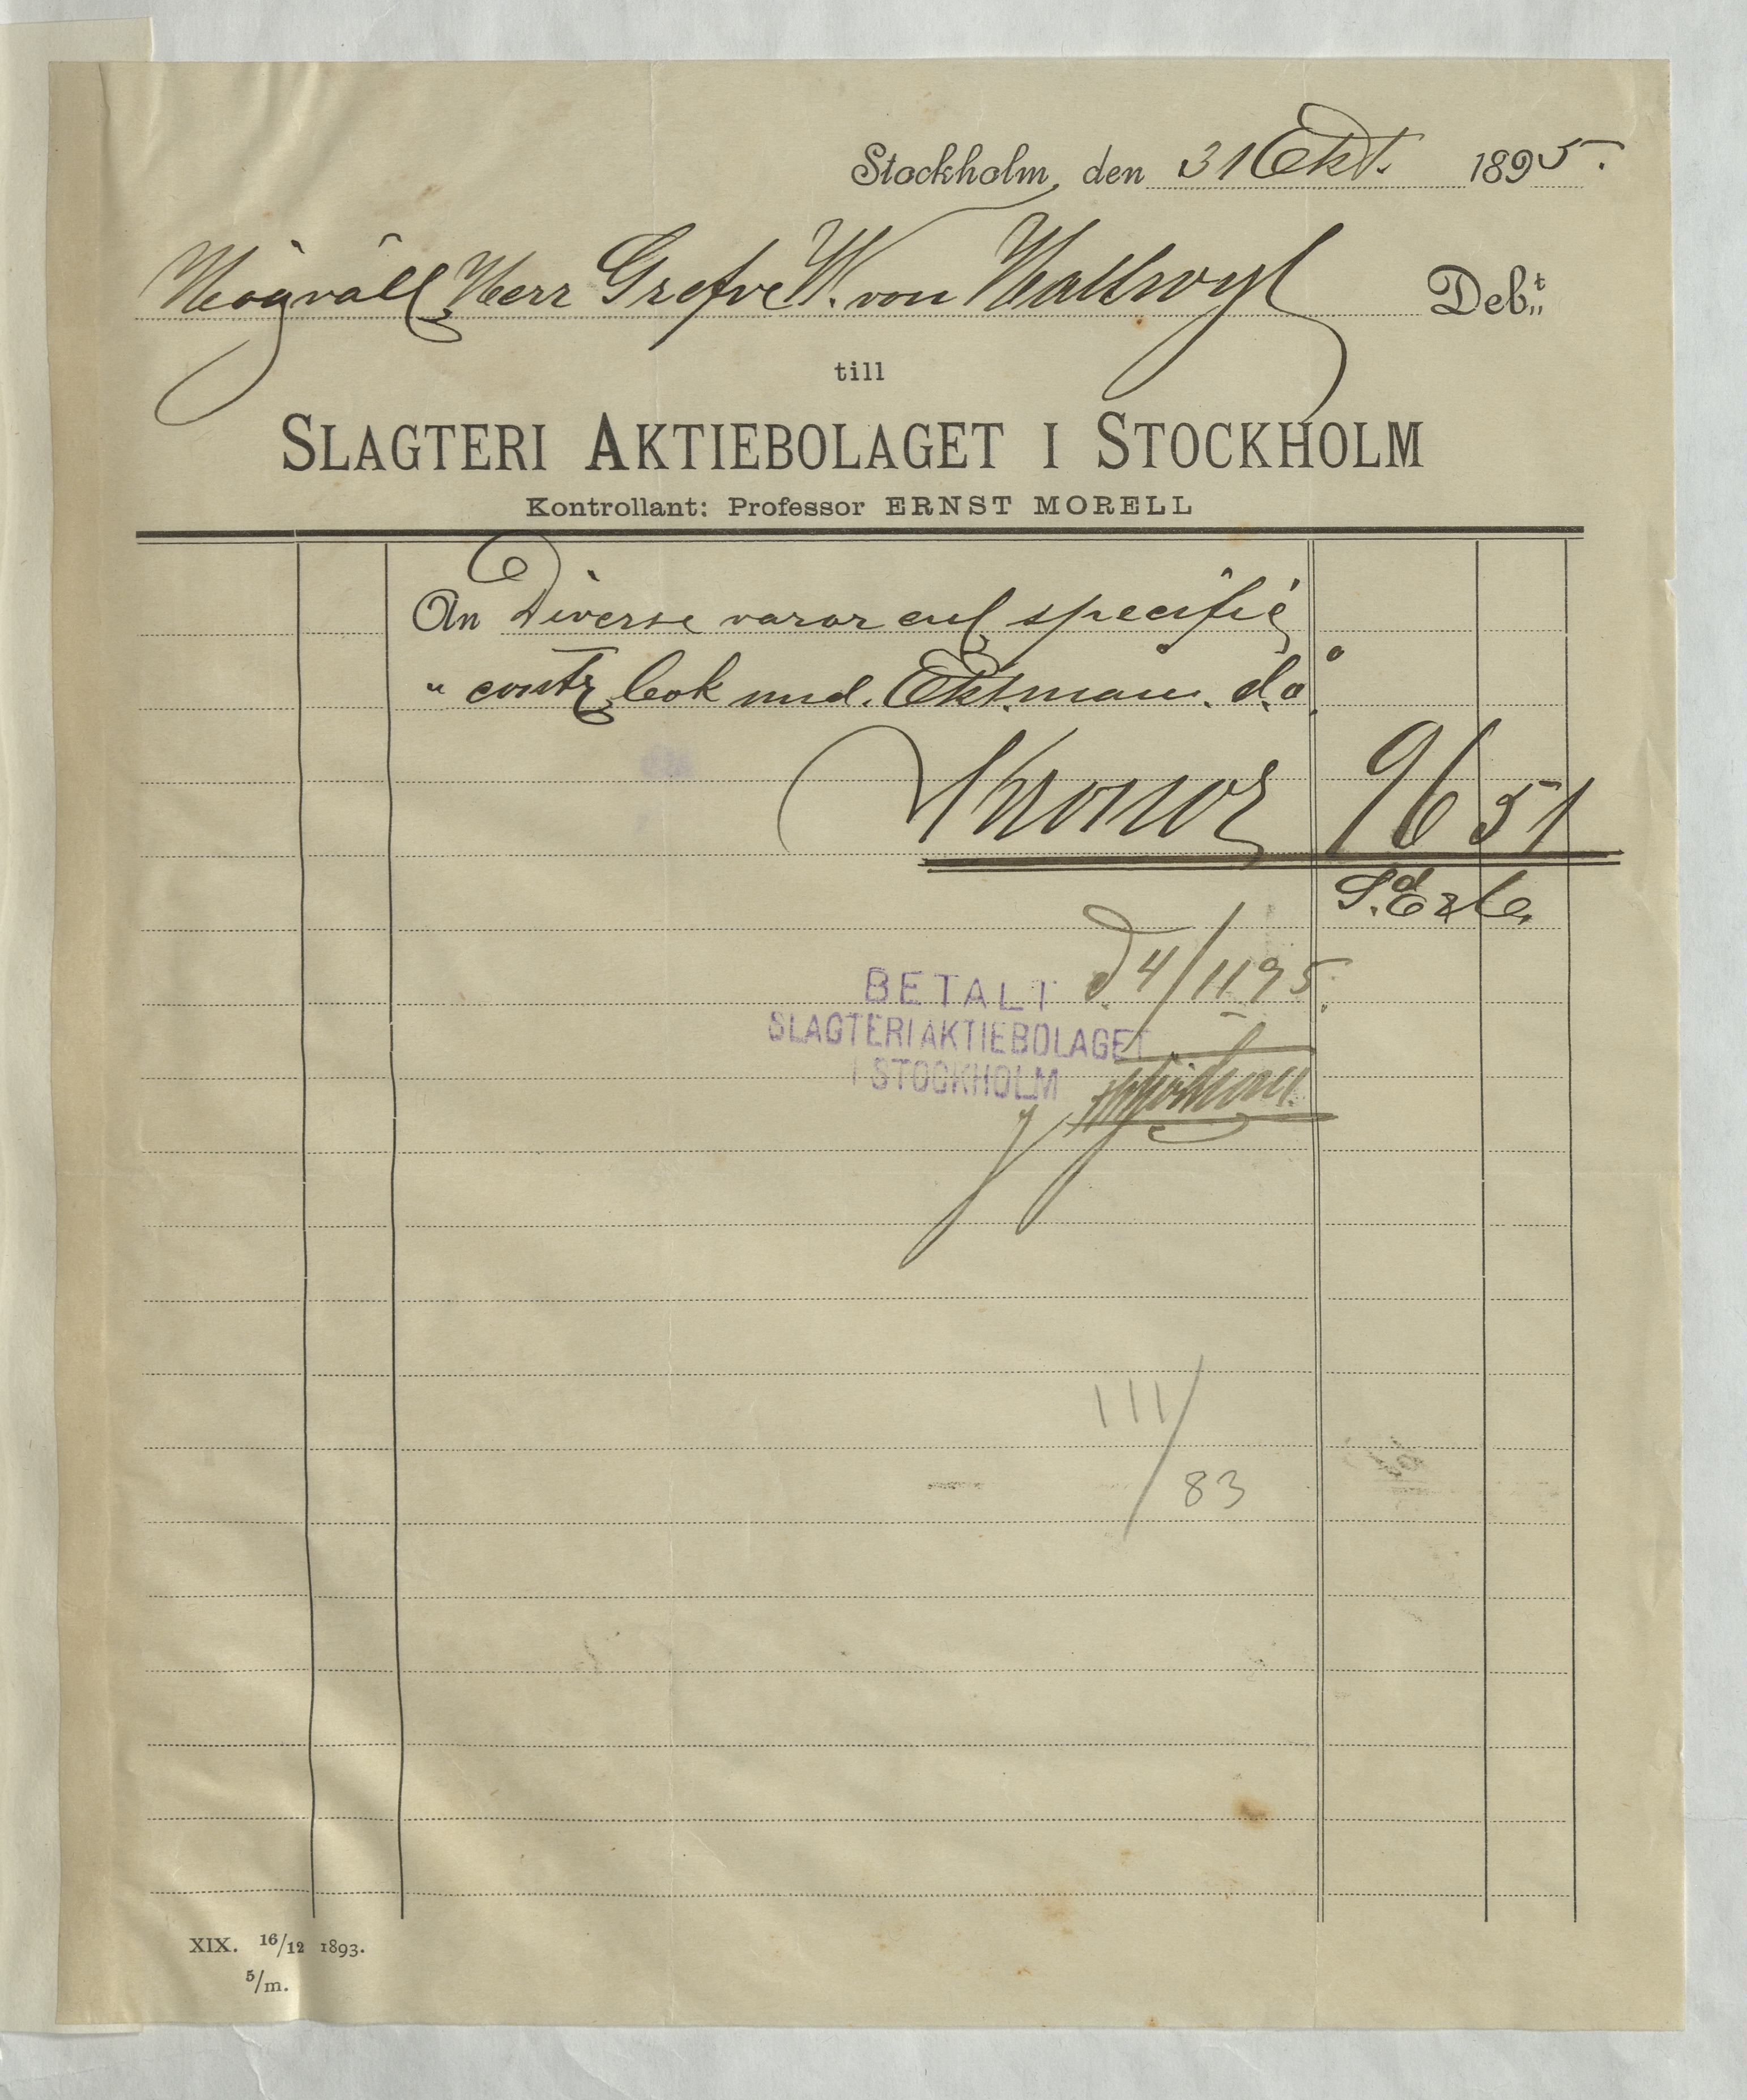 Stockholm, den 31 Okt. 1895.
Högväll Herr Grefve W. von Hallwyl Deb:t
till
SLAGTERI AKTIEBOLAGET I STOCKHOLM
Kontrollant: Professor ERNST MORELL
An Diverse varor enl specifie
" contr bok und. Oktman. d.o
Kronor 96 51
S. E. & O.
BETALT d. 4/11 95.
SLAGTERIAKTIEBOLAGET
I STOCKHOLM
111/83
XIX. 16/12 1893.
5/m.